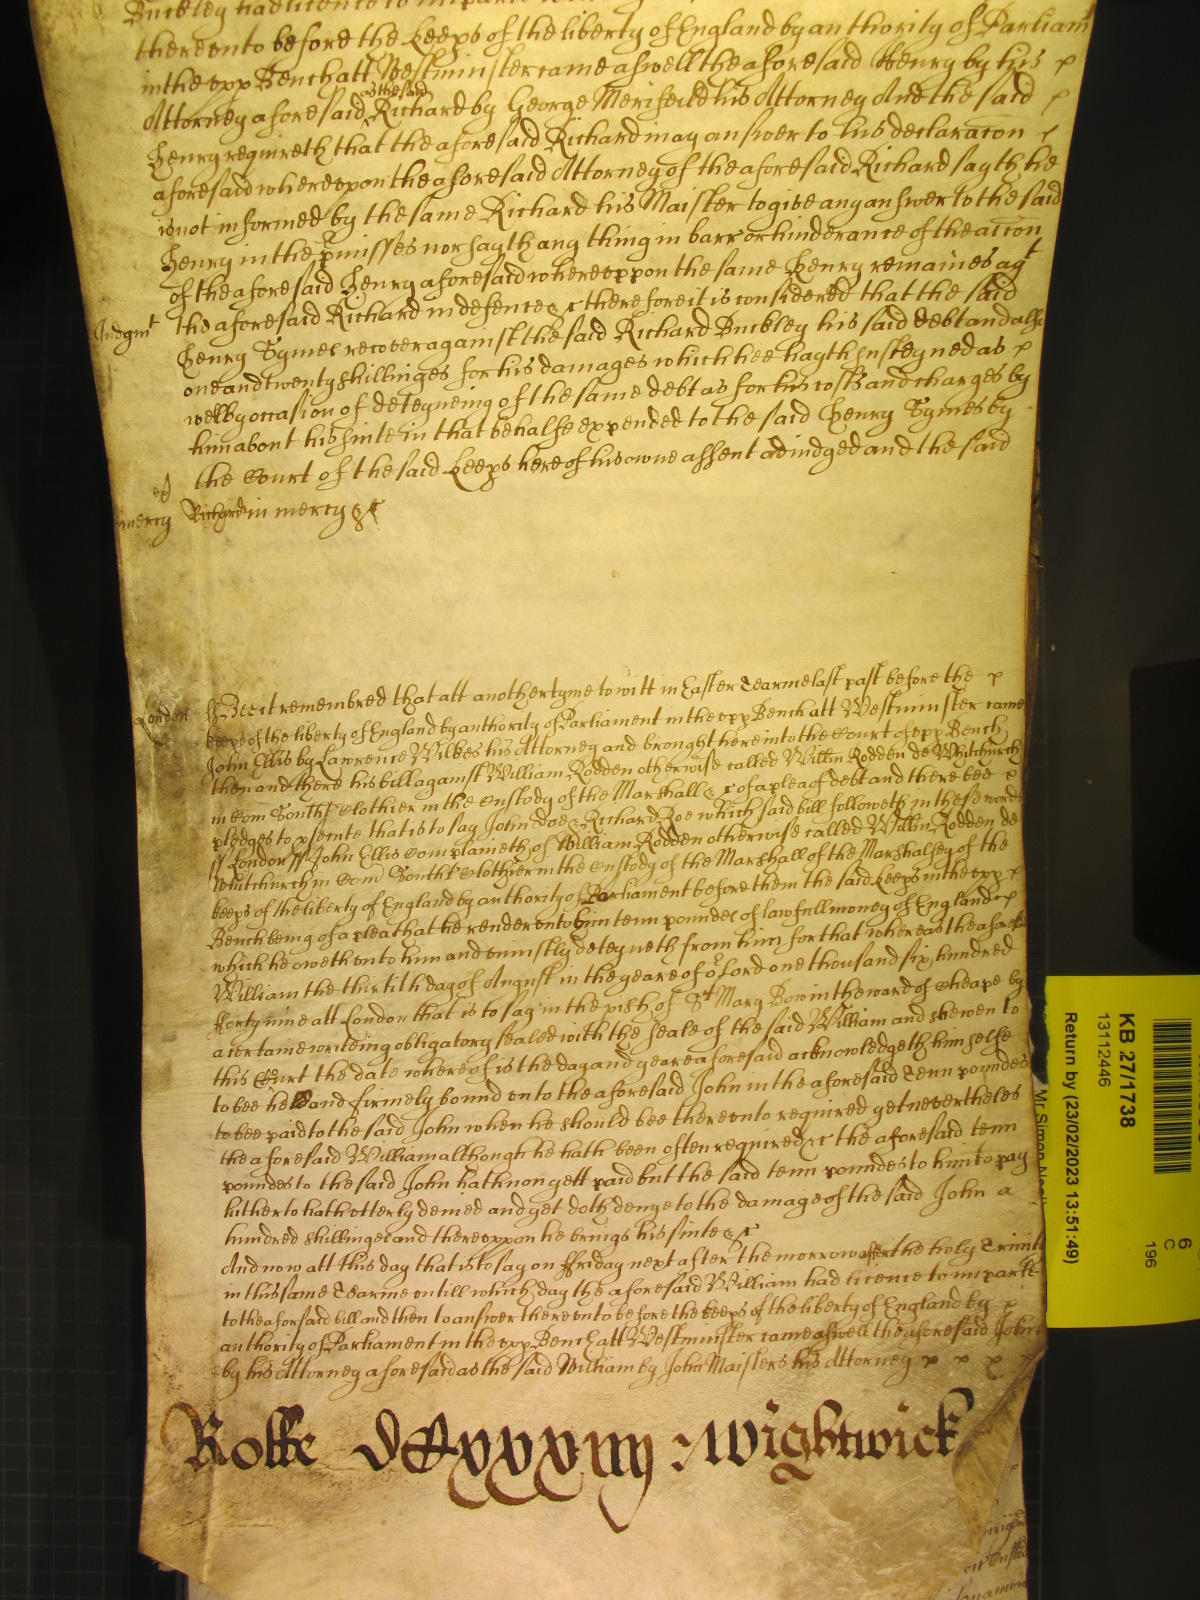 Buckley had licence to imparle
thereonto before the keeps of the liberty of England by authority of Parliamt
in the upp Bench att Westminster came aswell the aforesaid Henry by his
Attorney aforesaid as the said Richard by George Merifeild his Attorney And the said
Henry requireth that the aforesaid Richard may answer to his declaracon
aforesaid whereupon the aforesaid Attorney of the aforesaid Richard sayth he
is not informed by the same Richard his Maister to give any answer to the said
Henry in the pmisses nor sayth any thing in barr or hinderance of the accon
of the aforesaid Henry aforesaid whereuppon the same Henry remaines agt
the aforesaid Richard in defence &c therefore it is considered that the said
Judgmt
Henry Symes recover against the said Richard Buckley his said debt and also
one and twenty shillinges for his damages which hee hayth susteyned as
well by occasion of deteyneing of the same debt as for his costs and charges by
him about his suite in that behalfe expended to the said Henry Symes by
the Court of the said keeps here of his owne assent adiudged and the said
mercy Richard in mercy &c
London Bee it remembred that att another tyme to witt in Easter Tearme last past before the
keeps of the liberty of England by authority of Parliament in the upp Bench att Westminster came
John Ellis by Lawrence Wilkes his Attorney and brought here into the Court of upp Bench
then and there his bill against William Rodden otherwise called Willm Rodden de Whitchurch
in Com Southt Clothier in the custody of the Marshall &c of a plea of debt and there bee
pledges to psecute that is to say John Doe & Richard Roe which said bill followeth in these words
ss London ss John Ellis complaineth of William Rodden otherwise called Willm Rodden de
Whitchurch in Com Southt Clothier in the custody of the Marshall of the Marshalsey of the
keeps of the liberty of England by authority of Parliament before them the said keeps in the upp
Bench being of a plea that he render unto him tenn poundes of lawfull money of England
which he oweth unto him and uniustly deteyneth from him for that whereas the aforesd
William the thirtith day of August in the yeare of or Lord one thousand six hundred
fforty nine att London that is to say in the pish of St Mary Bow in the ward of Cheape by
a certaine writeing obligatory sealed with the seale of the said William and shewen to
this Court the date whereof is the day and yeare aforesaid acknowledgeth himselfe
to bee held and firmely bound unto the aforesaid John in the aforesaid Tenn poundes
to bee paid to the said John when he should bee thereunto required yet nevertheles
the aforesaid William although he hath been often required &c the aforesaid tenn
poundes to the said John hath not yett paid but the said tenn poundes to him to pay
hitherto hath utterly denied and yet doth denye to the damage of the said John a
hundred shillinges and thereuppon he brings his suite &c
And now att this day that is to say on ffriday next after the morrow after the holy Trinity
in this same Tearme untill which day the aforesaid William had licence to imparle
to the aforsaid bill and then to answer thereunto before the keeps of the liberty of England by
authority of Parliament in the upp Bench att Westminster came aswell the aforesaid John
by his Attorney aforesaid as the said William by John Maisters his Attorney
Rolle DCCxxxiiij : Wightwick
KB 27/1738
13112446
Return by (23/02/2023 13:51:49)
6
C
196